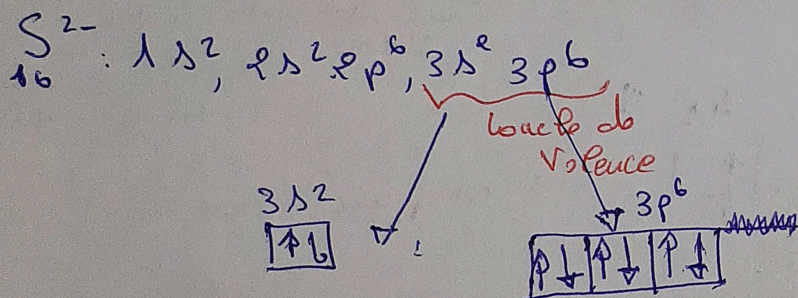 ₁₆S²⁻ : 1s², 2s² 2p⁶, 3s² 3p⁶
couche de
Valence
3s²
↑↓
3p⁶
↑↓ ↑↓ ↑↓